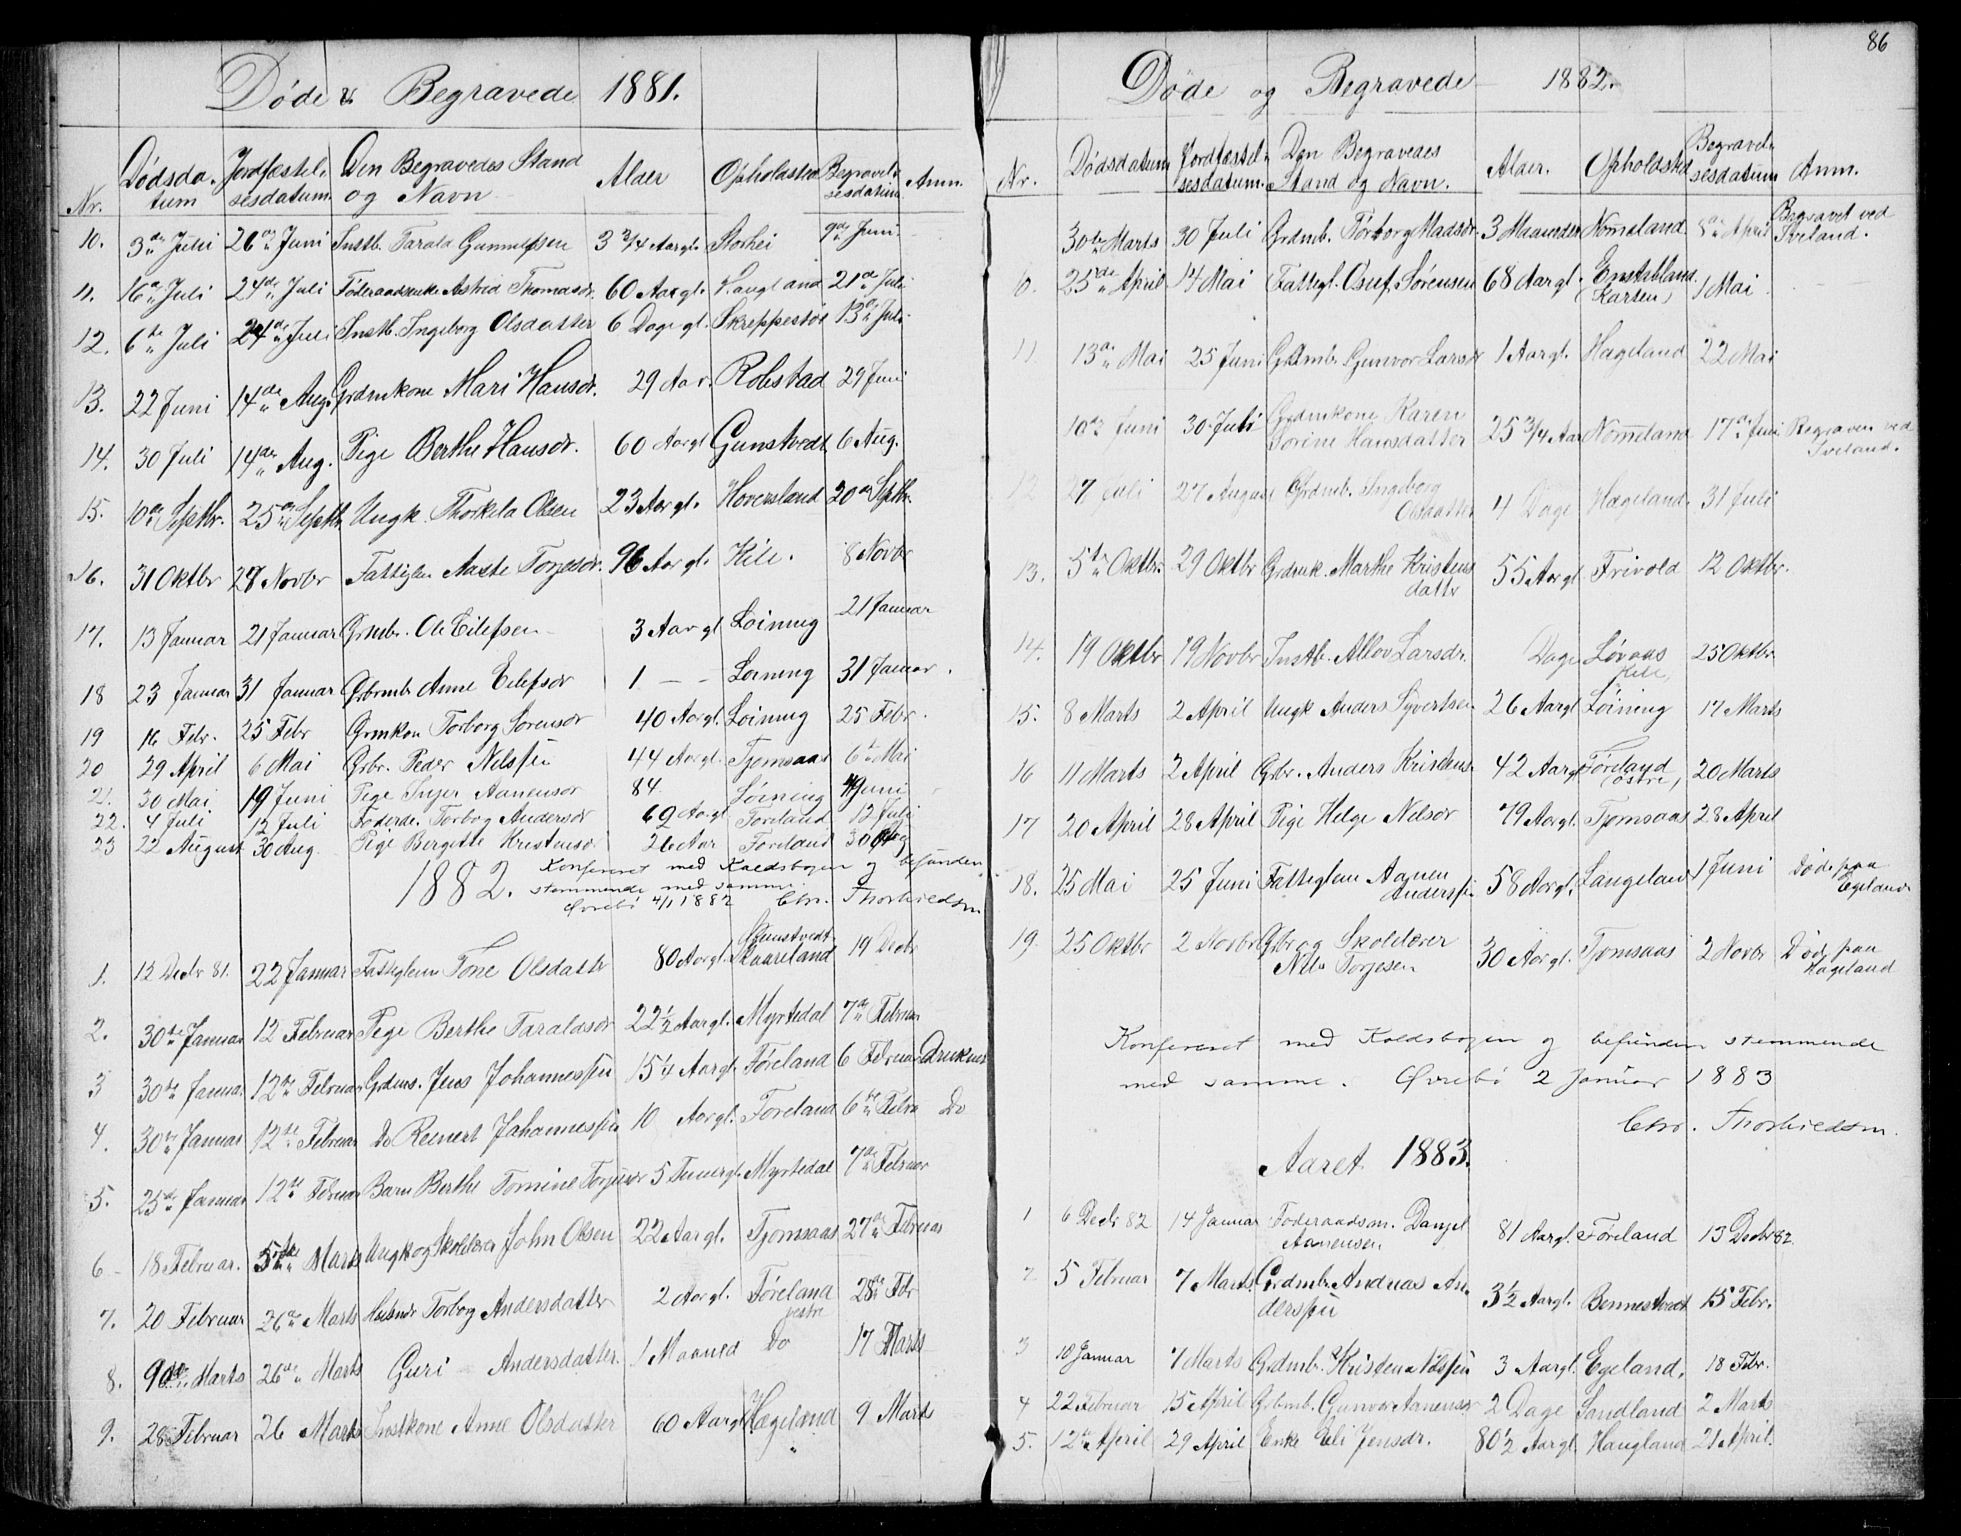 Døde & Begravede 1881.
Nr. Dødsda-tum Jordfæstel-sesdatum. Den Begravedes Stand og Navn Alder Opholdsted Begravel-sesdatum Anm.
10. 3de Juli 26de Juni Instb. Tarald Gunnulfsen 3 3/4 Aargl. Storhei 9de Juni
11. 16de Juli 24de Juli Føderaadsenke Astrid Thomasdr. 60 Aargl. Haugland 21de Juli
12. 6te Juli 24de Juli Instb. Ingeborg Olsdatter 6 Dage gl. Skreppestøl 13de Juli
13. 22 Juni 14de Aug. Grdmkone Mari Hansdr. 29 Aar. Robstad 29 Juni
14. 30 Juli 14de Aug. Pige Berthe Hansdr. 60 Aargl Gunstvedt 6 Aug.
15. 10de Septbr. 25de Septbr Ungk. Thorkild Olsen 23 Aargl. Hoversland 20de Septbr.
16. 31 Oktbr 28 Novbr Fattiglem Aaste Torjesdr. 96 Aargl. Kile. 8 Novbr
17. 13 Januar 21 Januar Grmbr. Ole Eilefsen 3 Aargl Løining 21 Januar
18 23 Januar 31 Januar Grbrmb Anne Eilefsdr 1 — — Løining 31 Januar.
19 16 Febr. 25 Febr Grmkon Torborg Sorensdr 40 Aargl. Løining 25 Febr.
20 29 April 6 Mai Grbr. Peder Nilssen 44 Aargl. Tjomsaas 6te Mai
21. 30 Mai 19 Juni Pige Inger Aanensdr 84. Løining Juni
22. 4 Juli 12 Juli Føderde. Torbog Andersdr 69 Aargl Foreland 12 Juli
23 22 August 30 Aug. Pige Bergitte Kristensdr 26 Aar Foreland 30 Aug
1882. Konfereret med Kaldsbogen og befunden
stemmende med samme.
Øvrebø 4/1 1882 Chr. Thorkildsen
1. 12 Decbr 81. 22 Januar Fattiglem Tone Olsdatter 80 Aargl. Gunstvedt Skaareland 19 Decbr
2. 30te Januar 12 Februar Pige Berthe Taraldsdr 22 1/2 Aargl. Myrtedal 7de Februar
3 30te Januar 12te Februar Grdms. Jens Johannessen 15 1/4 Aargl. Føreland 6 Februar Druknet
4. 30te Januar 12te Februar Do Reinert Johannessen 10 Aargl. Føreland 6te Febru Do
5. 25de Januar 12te Februar Barn Berthe Tomine Torjusdr 5 Timergl. Myrtedal 7de Februar
6 18 Februar. 5te Marts Ungk og Skolelærer John Olsen 22 Aargl. Tjomsaas 27de Februar
7. 20 Februar 26de Marts Torbog Andersdatter 2 Aargl. Føreland vestre 28de Febr
8. 9de Marts 26de Marts Guri Andersdatter. 1 Maaned Do 17 Marts
9. 28 Februar 26 Marts Instkone Anne Olsdatter 60 Aargl Hægeland 9 Marts
86
Døde og Begravede 1882.
Nr. Dødsdatum Jordfæstel-sesdatum. Den Begravedes Stand og Navn. Alder. Opholdsted Begravel-sesdatum Anm.
30te Marts 30 Juli Grdmb. Torborg Madsdr. 3 Maaneder Nomeland 8de April Begravet ved Iveland.
0. 25de April 14 Mai Fattigl. Osuf Sørensen 68 Aargl. Enstabland (Karten) 1 Mai
11. 13de Mai 25 Juni Grdmb. Gunvor Larsdr 1 Aargl. Hægeland 22 Mai
10de Juni 30 Juli Grdmkone Karen Torine Hansdatter 25 3/4 Aar Nomeland 17de Juni Begraven ved Iveland.
12 27 Juli 27 August Grdmb. Ingeborg Olsdatter 4 Dage Hægeland. 31 Juli
13. 5te Oktbr. 29 Oktbr Grdmk. Marthe Kristensdatter 55 Aargl. Frivold 12 Oktbr.
14. 19 Oktbr 19 Novbr Instb. Allov Larsdr. Dage Løvaas Kile, 25 Oktbr
15. 8 Marts 2 April Ungk Anders Syvertsen 26 Aargl Løining 17 Marts
16 11 Marts 2 April Grbr. Anders Kristens. 42 Aargl Føreland østre, 20 Marts
17 20 April 28 April Pige Helge Nelsdr 79 Aargl. Tjomsaas 28 April
18. 25 Mai 25 Juni Fattiglem Aanen Anderssen 58 Aargl. Langeland 1 Juni Døde paa Egeland
19. 25 Oktbr 2 Novbr Grbr og Skolelærer Nils Torjesen 30 Aargl. Tjomsaas 2 Novbr Døde paa Hægeland
Konfereret med Kaldsbogen og befunden stemmende
med samme. Øvrebø 2 Januar 1883
Chr. Thorkildsen.
Aaret 1883.
1 6 Decbr 82 14 Januar Føderaadsm. Danjel Aanensen. 81 Aargl. Føreland 13 Decbr 82.
2 5 Februar 7 Marts Grdmb. Andreas Anderssen 3 1/2 Aargl. Bennestvedt 15 Febr.
3 10 Januar 7 Marts Grdmb. Kristen Nilssen 3 Aargl. Egeland. 18 Febr.
4 22 Februar 15 April Grbmb. Gunvor Aanensdr 2 Dage Sandland 2 Marts
5. 12te April 29 April Enke Eli Jensdr. 80 1/2 Aargl. Haugland 21 April.